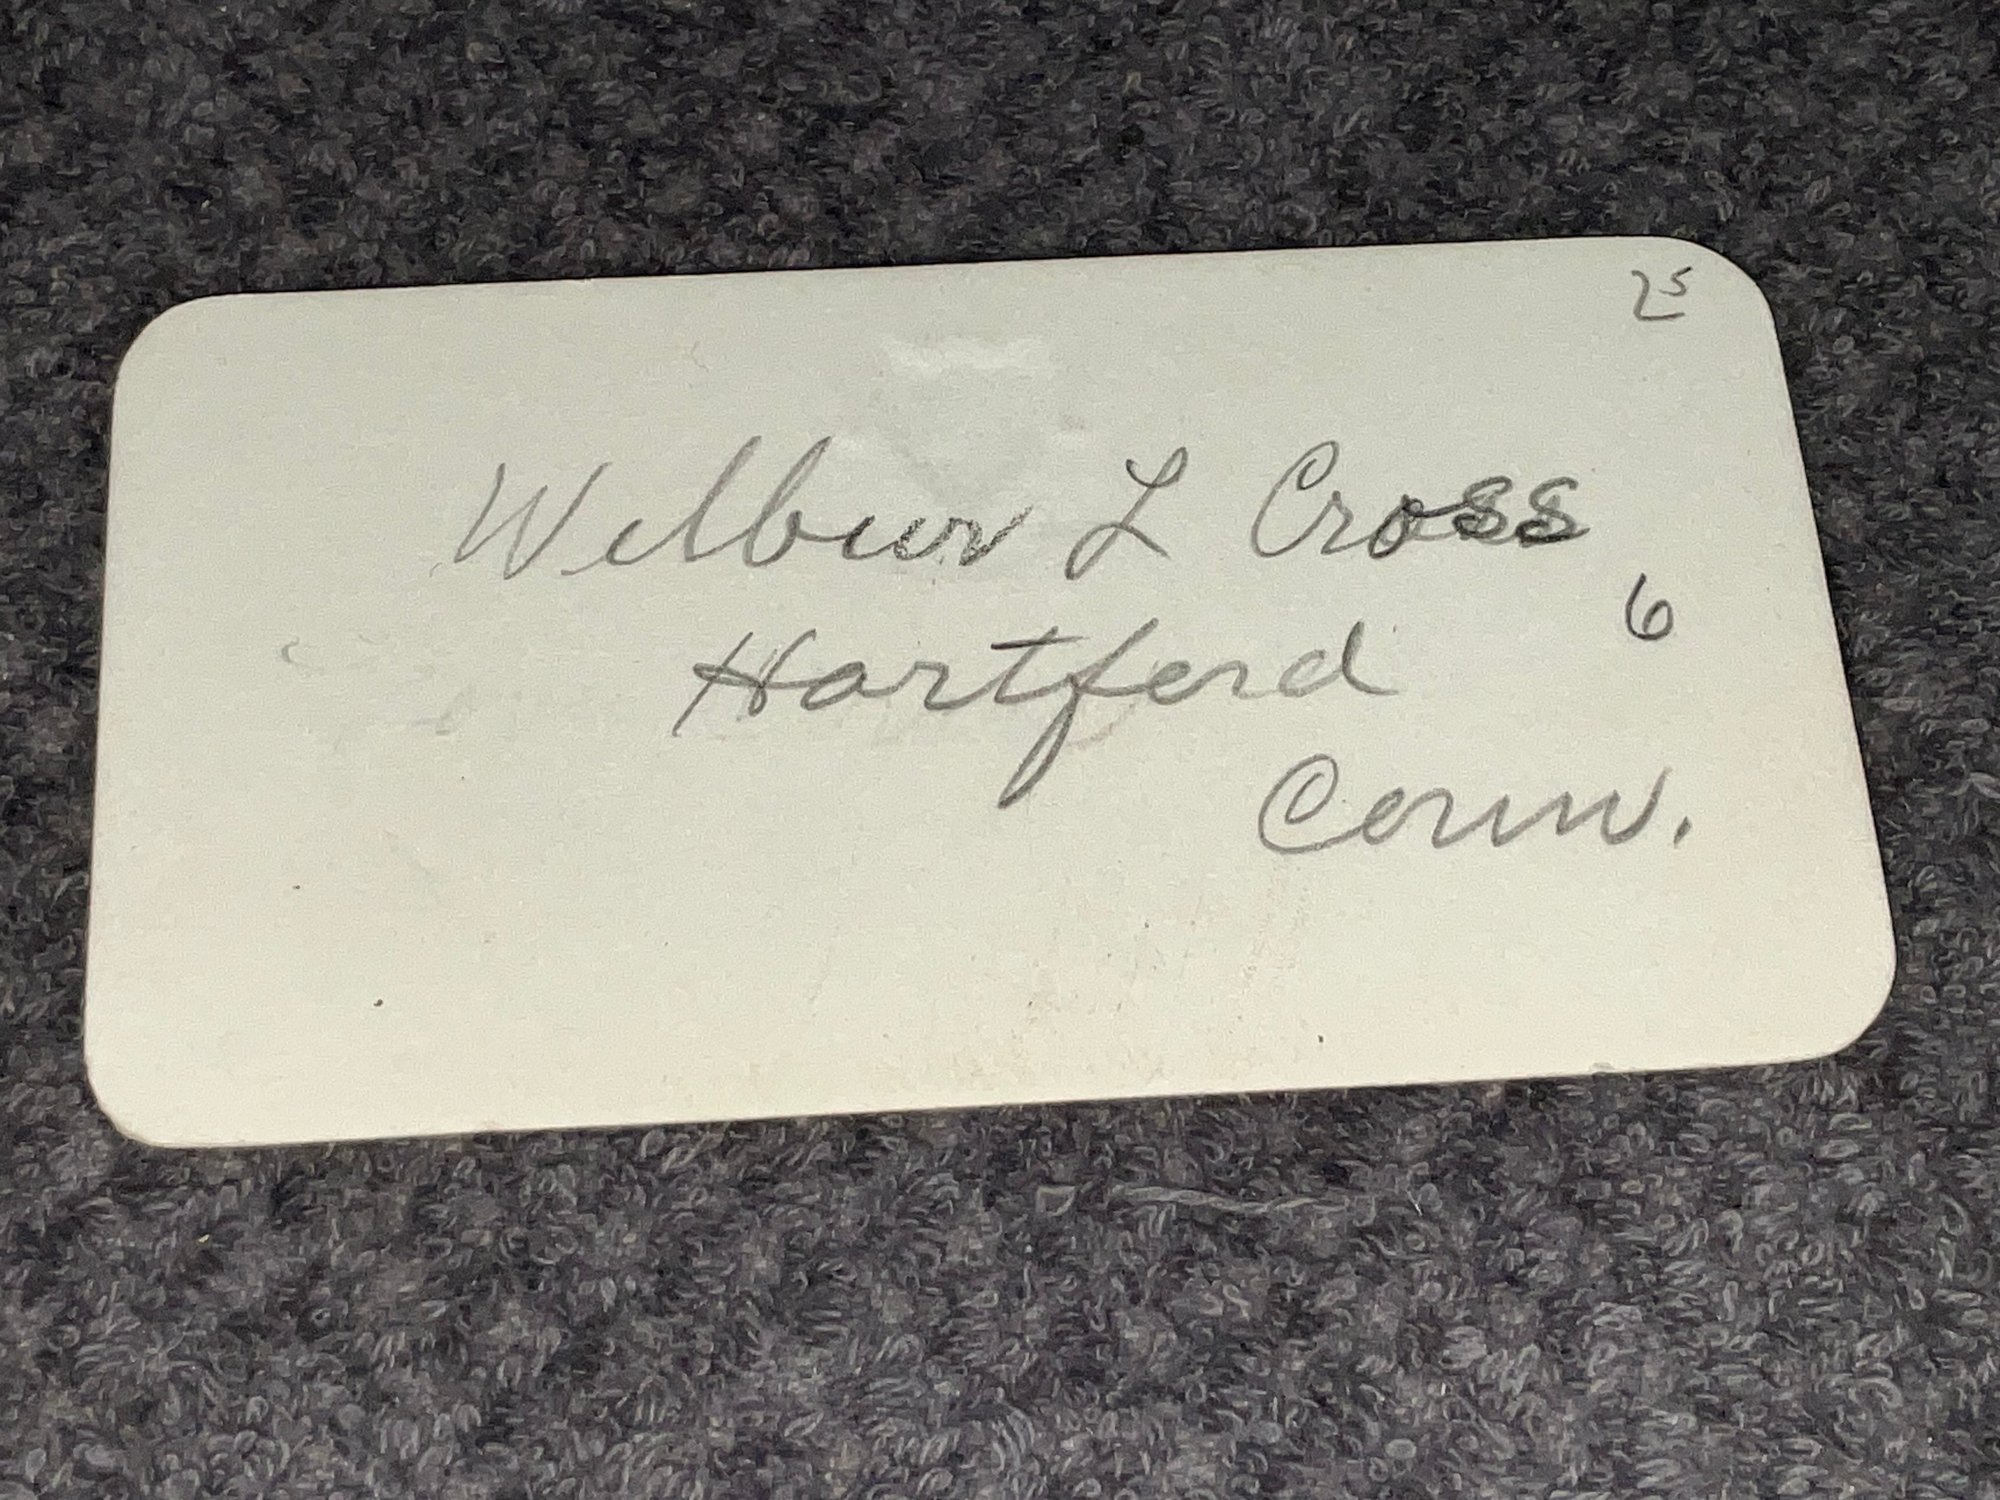 25
Wilbur L Cross
6
Hartford
Conn.